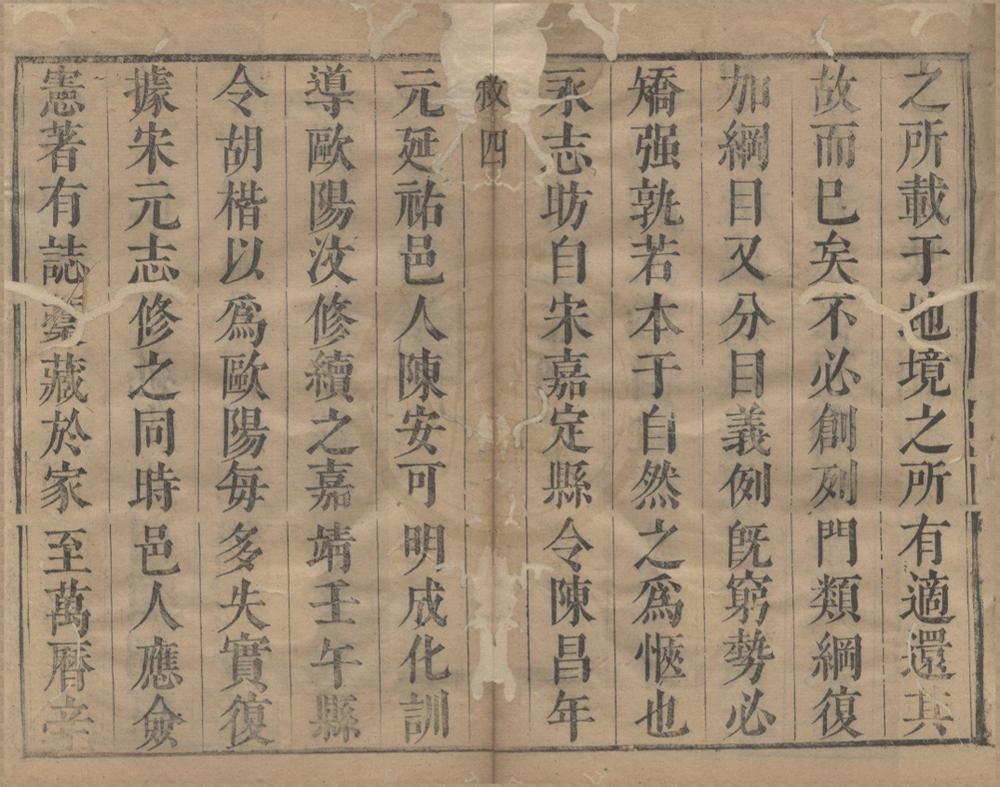 之所載于地境之所有適還其
故而巳矣不必創列門類綱復
加綱目又分目義例旣窮勢必
矯强孰若本于自然之爲愜也
永志昉自宋嘉定縣令陳昌年
敘 四
元延祐邑人陳安可明成化訓
導歐陽汶修續之嘉靖壬午縣
令胡楷以爲歐陽每多失實復
據宋元志修之同時邑人應僉
憲著有誌藁藏於家至萬曆辛